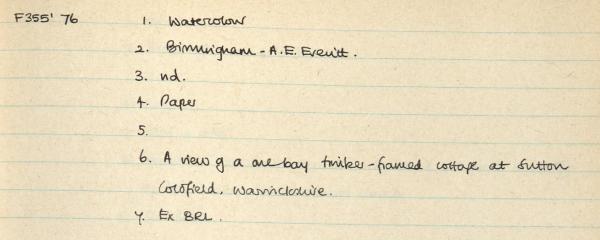 F355' 76 1. Watercolour
2. Birmingham - A.E. Everitt.
3. nd.
4. Paper
5.
6. A view of a one bay timber-framed cottage at Sutton
Coldfield, Warwickshire.
7. Ex BRL.